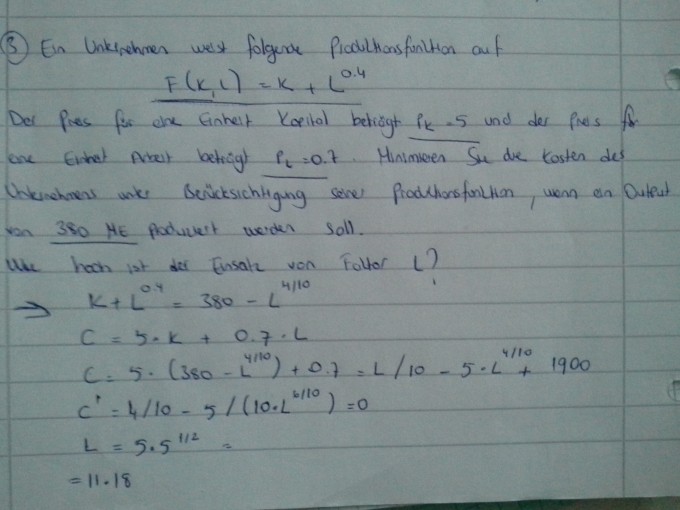 ③ Ein Unternehmen weist folgende Produktionsfunktion auf
F(K,L) = K + L^0.4
Der Preis für eine Einheit Kapital beträgt PK = 5 und der Preis für
eine Einheit Arbeit beträgt PL = 0.7. Minimieren Sie die Kosten des
Unternehmens unter Berücksichtigung seiner Produktionsfunktion, wenn ein Output
von 380 ME produziert werden soll.
Wie hoch ist der Einsatz von Faktor L?
→ K + L^0.4 = 380 - L^4/10
C = 5·K + 0.7·L
C = 5·(380 - L^4/10) + 0.7 = L/10 - 5·L^4/10 + 1900
C' = 4/10 - 5/(10·L^6/10) = 0
L = 5·5^1/2 =
= 11.18